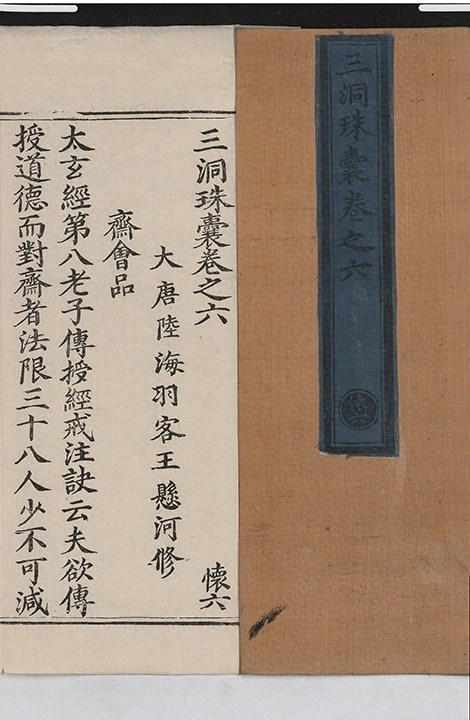 三洞珠囊卷之六
懷六
三洞珠囊卷之六
懷六
大唐陸海羽客王懸河修
齋會品
太玄經第八老子傳授經戒注訣云夫欲傳
授道德而對齋者法限三十八人少不可減